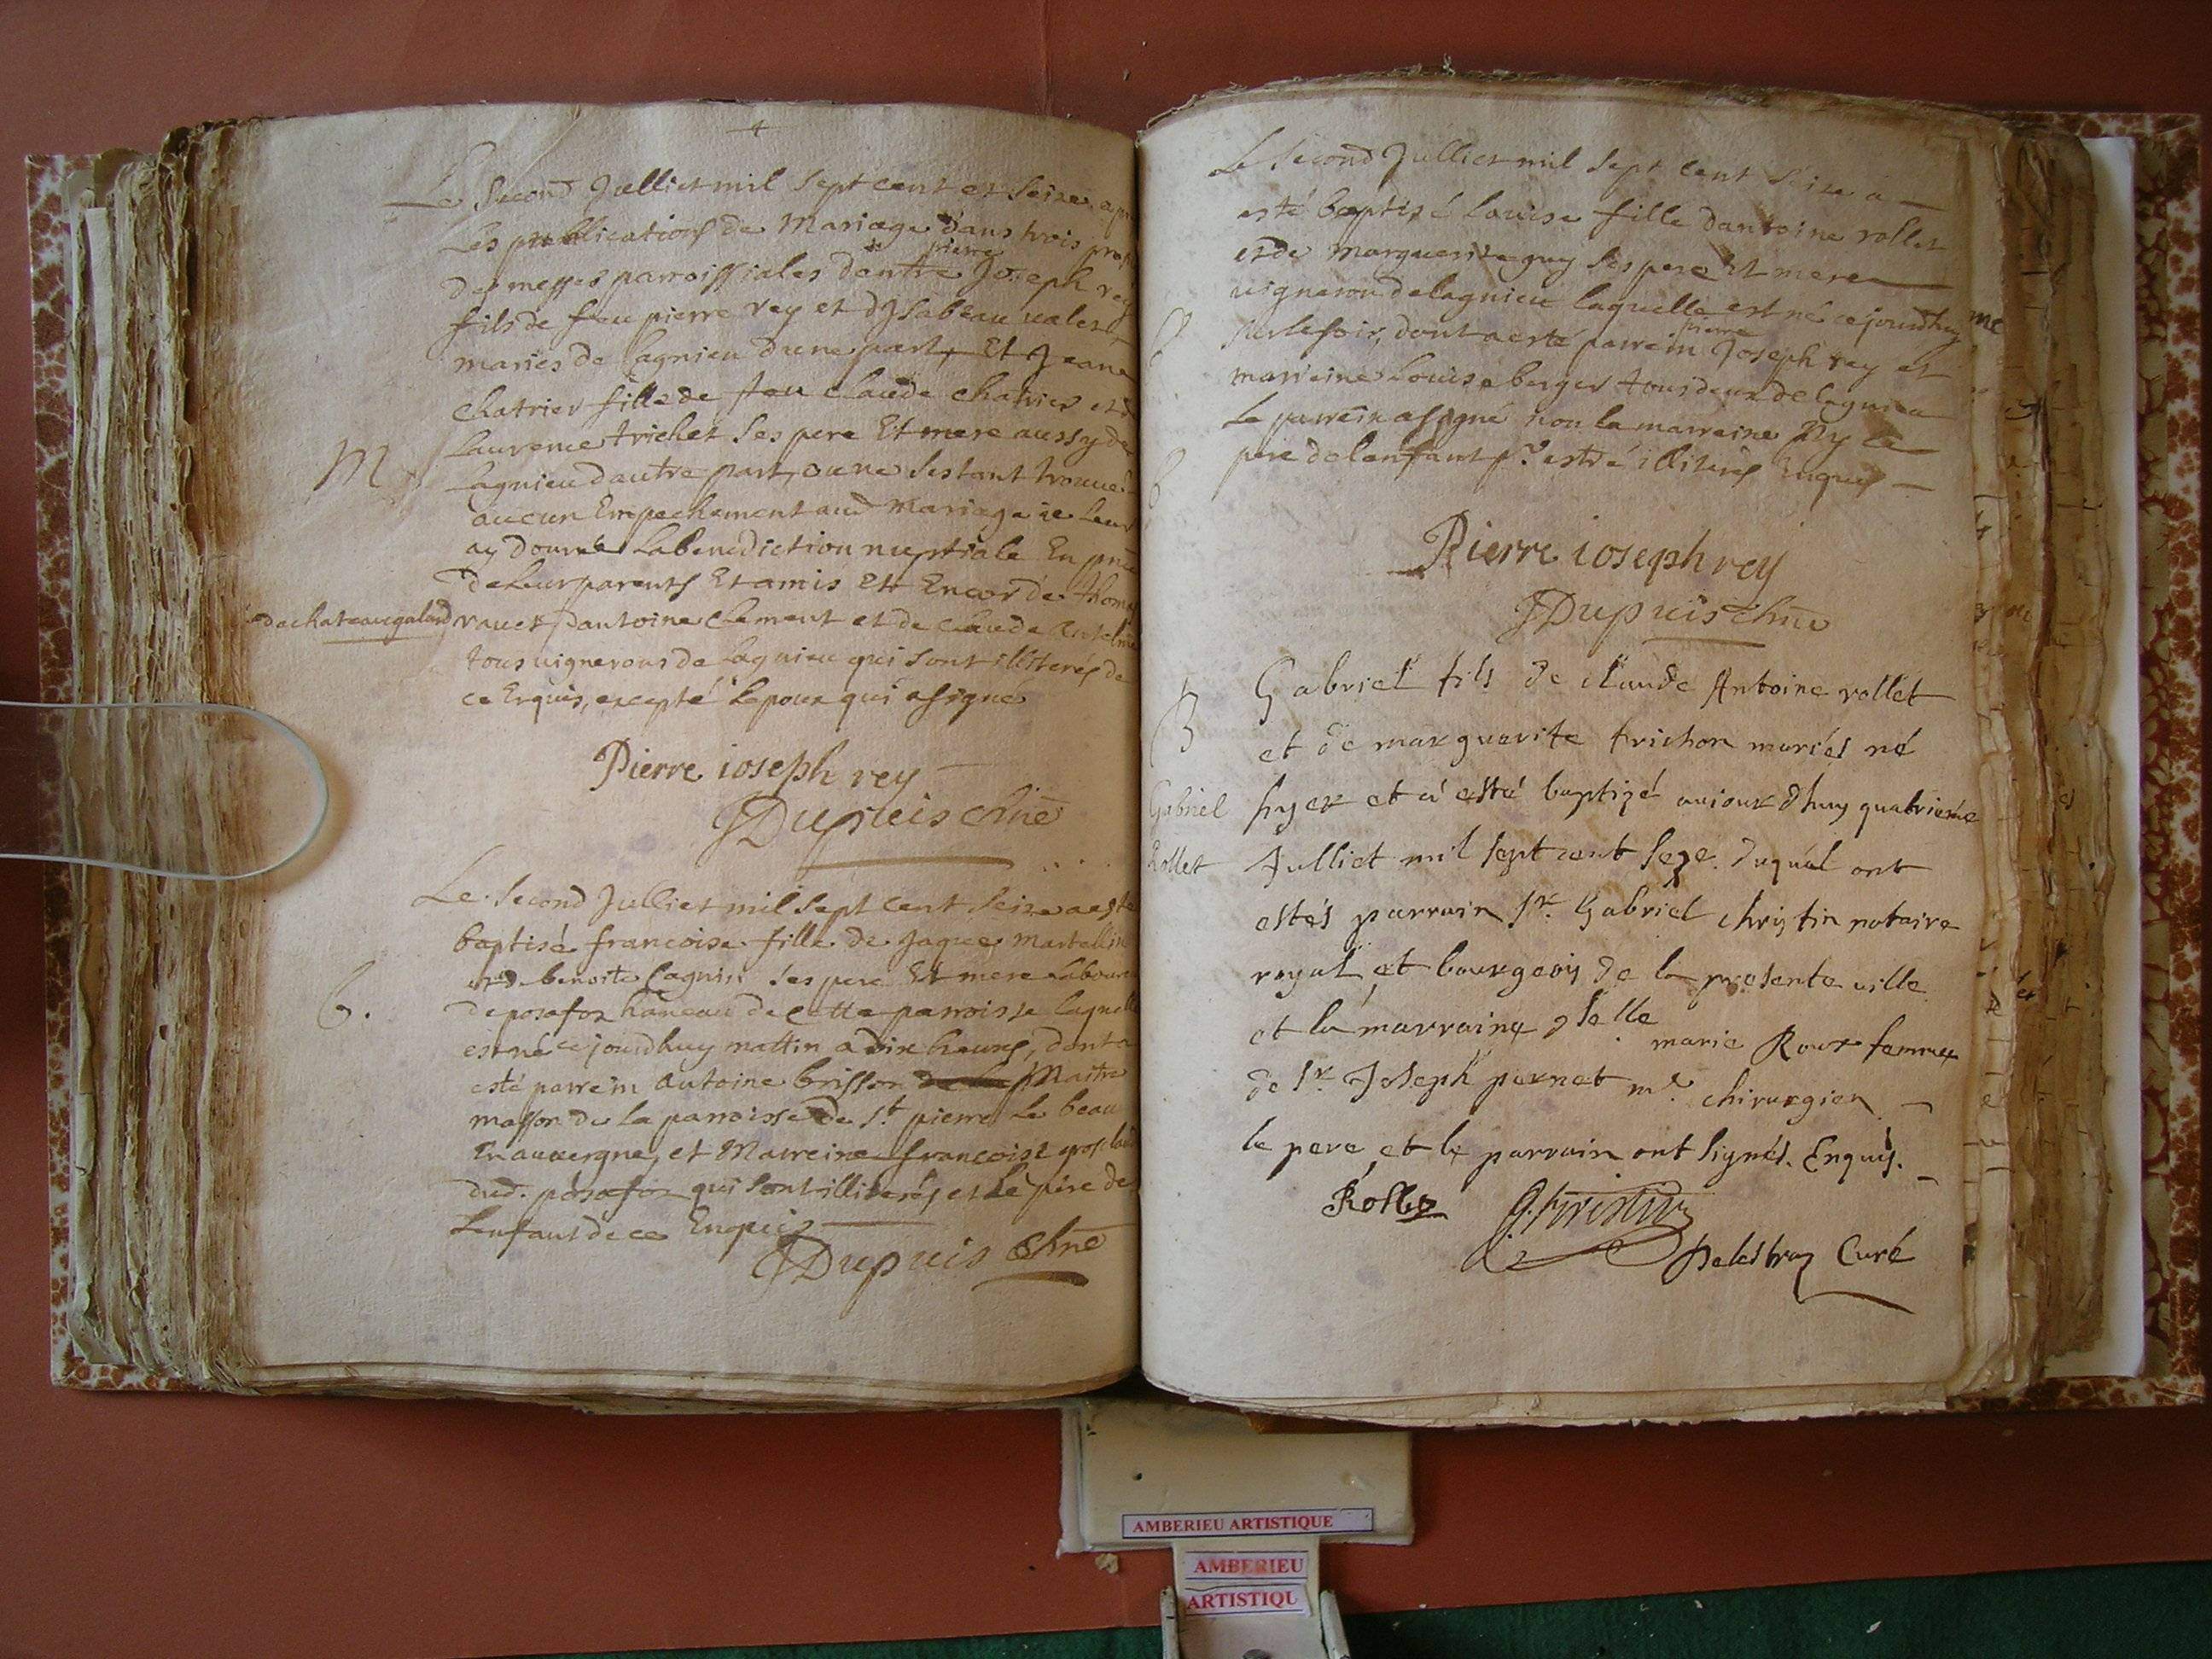 Le Second Julliet mil Sept cent et Seize
Les publications de Mariage dans trois
pierre
des messes parroissiales dentre Joseph rey
fils de feu pierre rey et dysabeau
maries de lagnieu dune part, Et Jeane
Chatrier fille de feu Claude Chatrier et
M
Laurence trichet Ses pere Et mere aussy de
Lagnieu dautre part, ou ne Sestant trouué
aucun Empechement aud mariage ie leur
ay donnée La benediction nuptiale En
de Leur parents Et amis Et Encor de
de chateaugalard
dantoine Clement et de Claude
tous uignerons de Lagnieu qui Sont illiterés de
ce Enquis, excepté Lepoux qui a signé
Pierre ioseph rey
JDupuis
Le Second Julliet mil Sept Cent Seize a esté
baptisé francoise fille de Jaques martellin
B.
et de benoite Cagnin Ses pere Et mere
de posafox hameau de Cette parroisse laquelle
est né ce jourdhuy mattin a dix heures, dont a
esté parrein antoine brisson Maitre
masson de La parroisse de St. pierre Le beau
En auuergne, et Marreine francoise
dud. posafox qui Sont illiterés et le père de
Lenfant de ce Enquis
JDupuis
Le Second Julliet mil Sept Cent Seize a
esté baptisé Louise fille dantoine rollet
et de marguerite guy Ses pere Et mere
uigneron de lagnieu laquelle est né ce jourdhuy
pierre
Sur le soir, dont a esté parrein Joseph rey et
marreine Louise berger tous deux de lagnieu
Le parrein a signé non la marreine Ny le
père de lenfant pr. estre illiterés Enquis
Pierre ioseph rey
JDupuis
B
Gabriel fils de Claude Antoine rollet
et de marguerite trichon mariés né
Gabriel
hyer et a esté baptizé auiourdhuy quatriéme
Rollet
Julliet mil sept cent seze. duquél ont
estés parrain Sr. Gabriel christin notaire
royal, et bourgeois de la presente uille
et la marraine Delle. marie Roux femme
de Sr. Joseph pernet me. chirurgien
le pere, et le parrain ont signés. Enquis.
Rollet
G. Christin
Curé
AMBERIEU ARTISTIQUE
AMBERIEU
ARTISTIQU